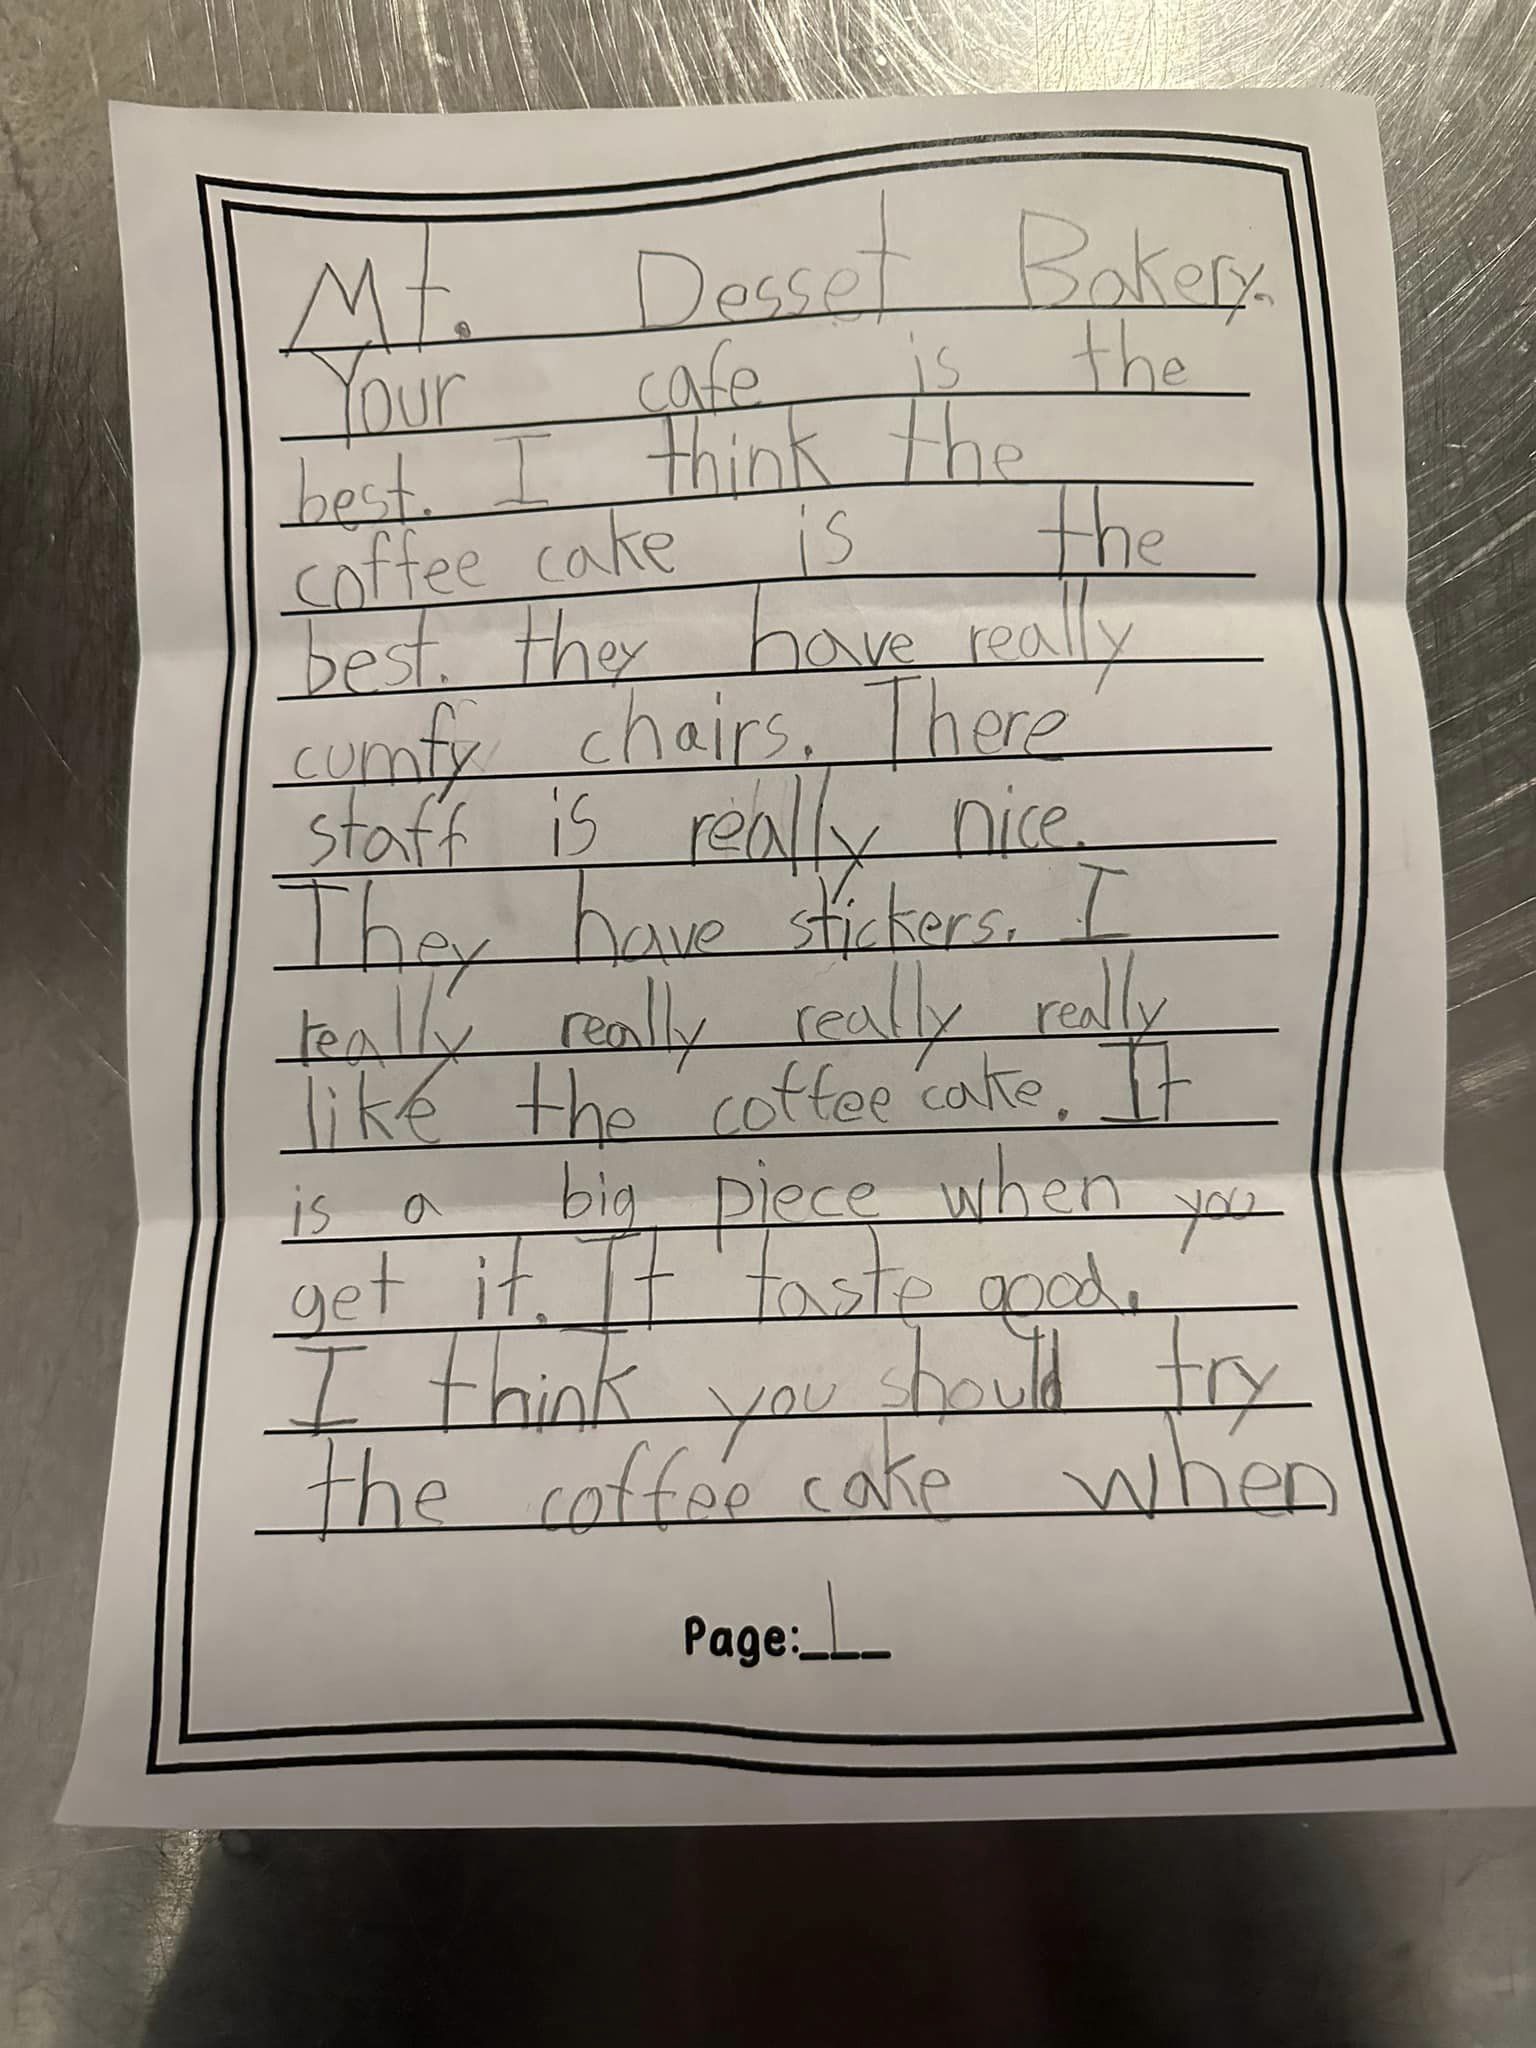 Mt. Desset Bakery.
Your cafe is the
best. I think the
coffee cake is the
best. they have really
cumfy chairs. There
staff is really nice.
They have stickers. I
really really really really
like the coffee cake. It
is a big piece when you
get it. It taste good.
I think you should try
the coffee cake when
Page: 1